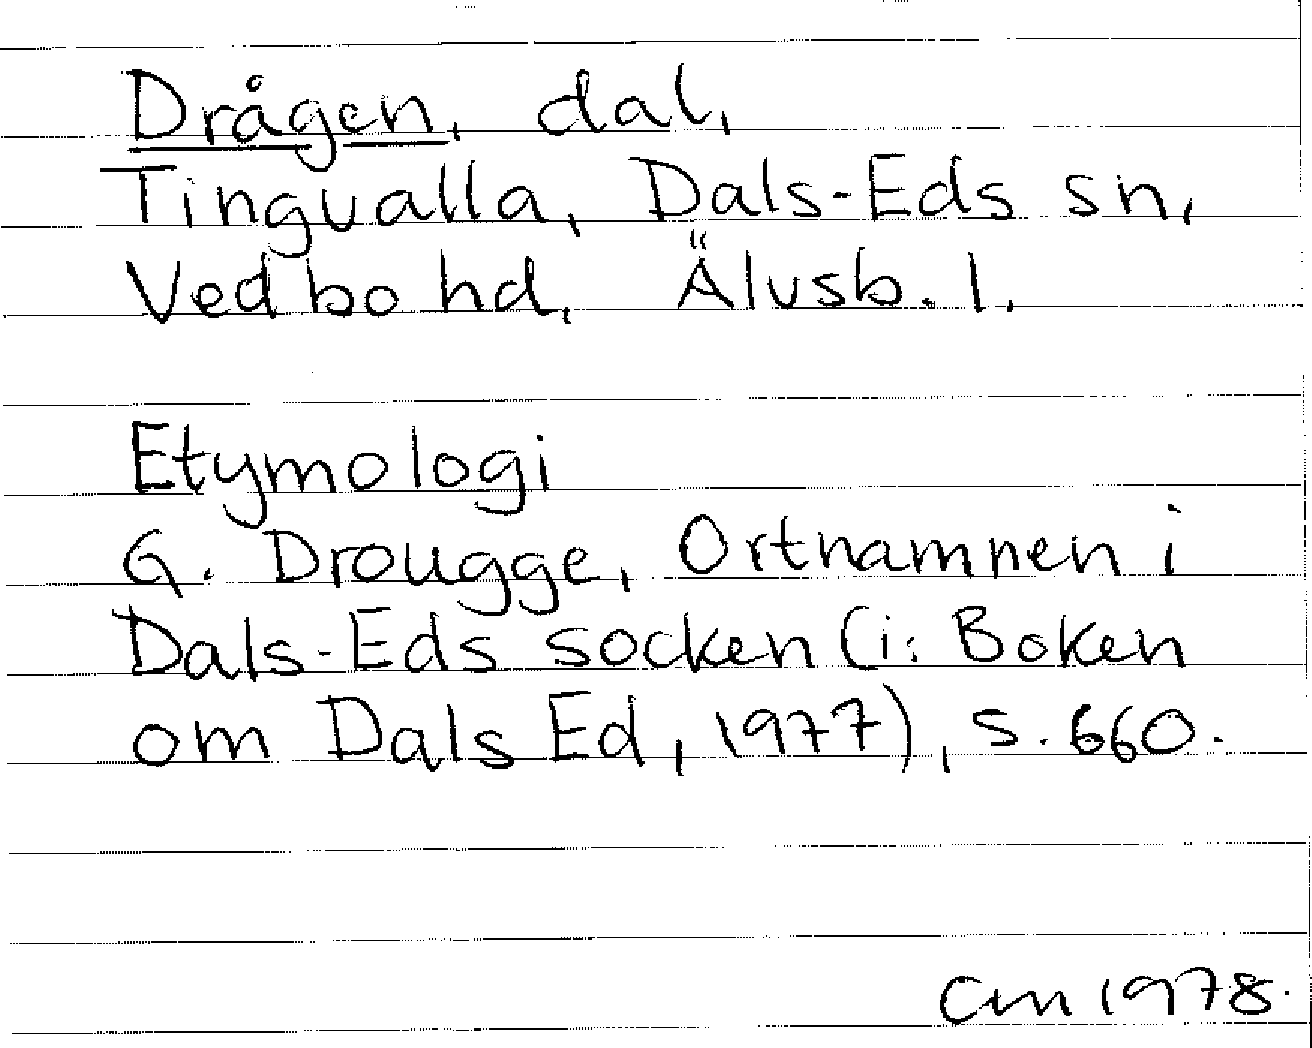 Drågen, dal,
Tingvalla, Dals-Eds sn,
Vedbo hd, Älvsb. l.
Etymologi
G. Drougge, Ortnamnen i
Dals-Eds socken (i: Boken
om Dals Ed, 1977), s. 660.
1978.